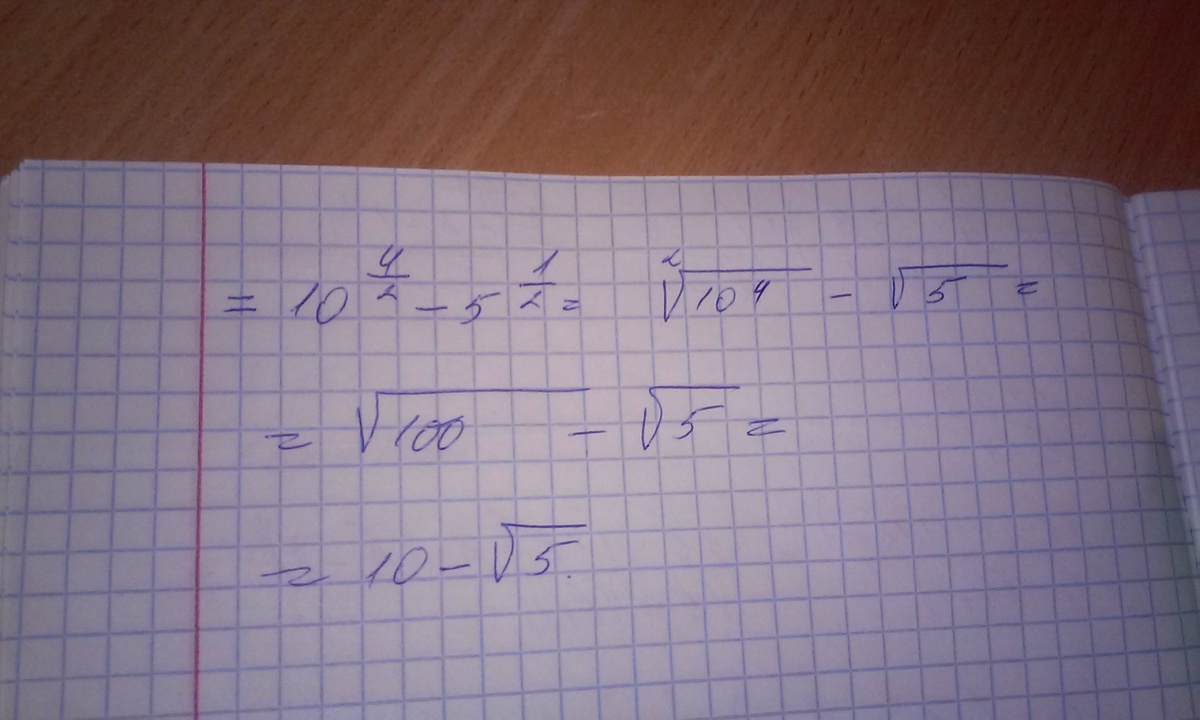 = 10^(4/2) - 5^(1/2) = ²√(10⁴) - √5 =
= √100 - √5 =
= 10 - √5.